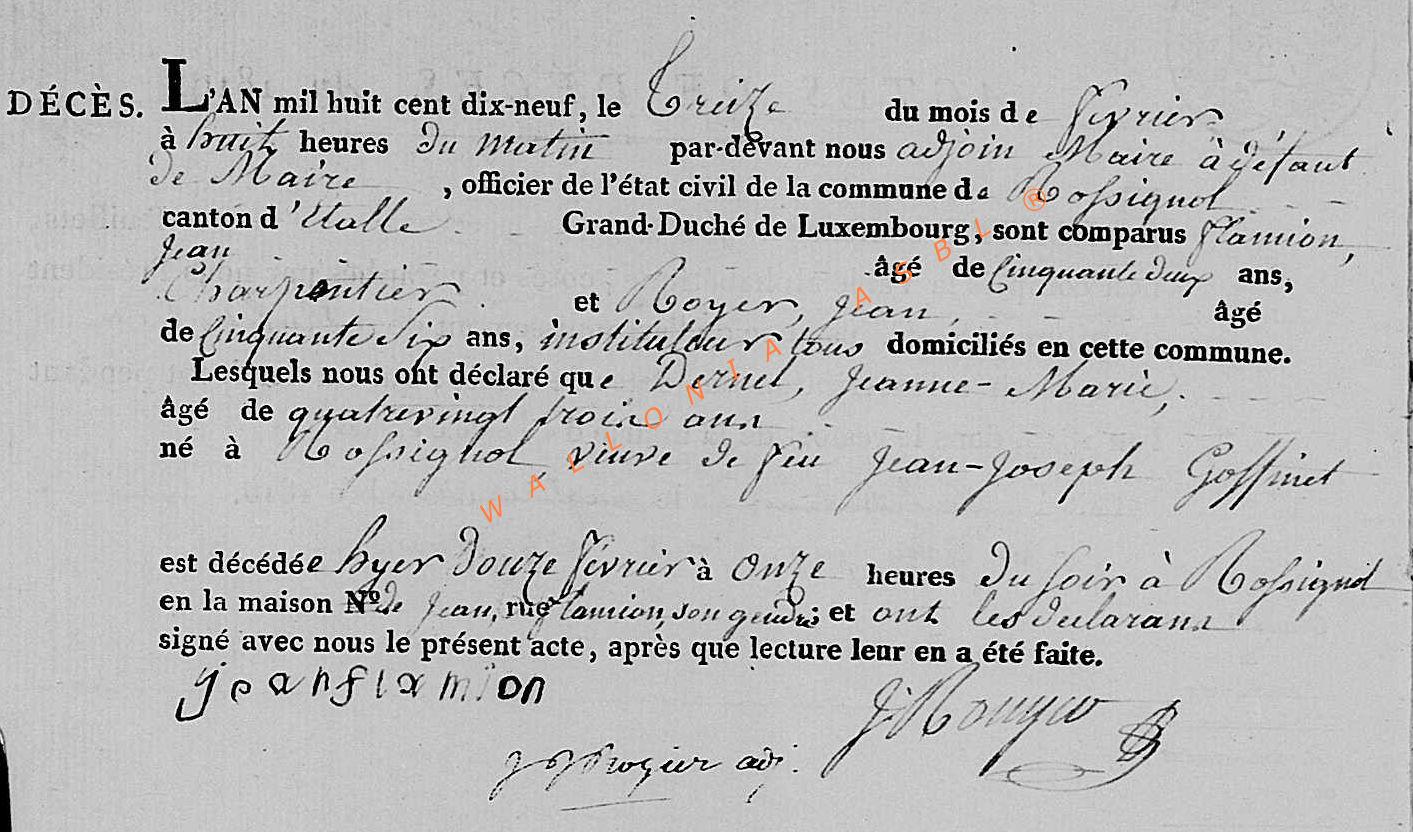 DÉCÈS. L'AN mil huit cent dix-neuf, le Treize du mois de février
à huit heures du matin par-devant nous adjoin Maire à défaut
de Maire , officier de l'état civil de la commune de Rossignol
canton d'Etalle Grand-Duché de Luxembourg, sont comparus flamion,
Jean âgé de Cinquante deux ans,
Charpentier et Royer, Jean, âgé
de Cinquante Six ans, instituteur tous domiciliés en cette commune.
Lesquels nous ont déclaré que Dernel, Jeanne-Marie,
âgé de quatrevingt trois ans
né à Rossignol, veuve de feu Jean-Joseph Goffinet
est décédée hyer douze février à Onze heures du soir à Rossignol
en la maison No. de Jean, rue flamion, son gendre; et ont les declarans
signé avec nous le présent acte, après que lecture leur en a été faite.
jeanflamion
J. Rouyer
J J Rogier adj.
WALLONIA ASBL ®